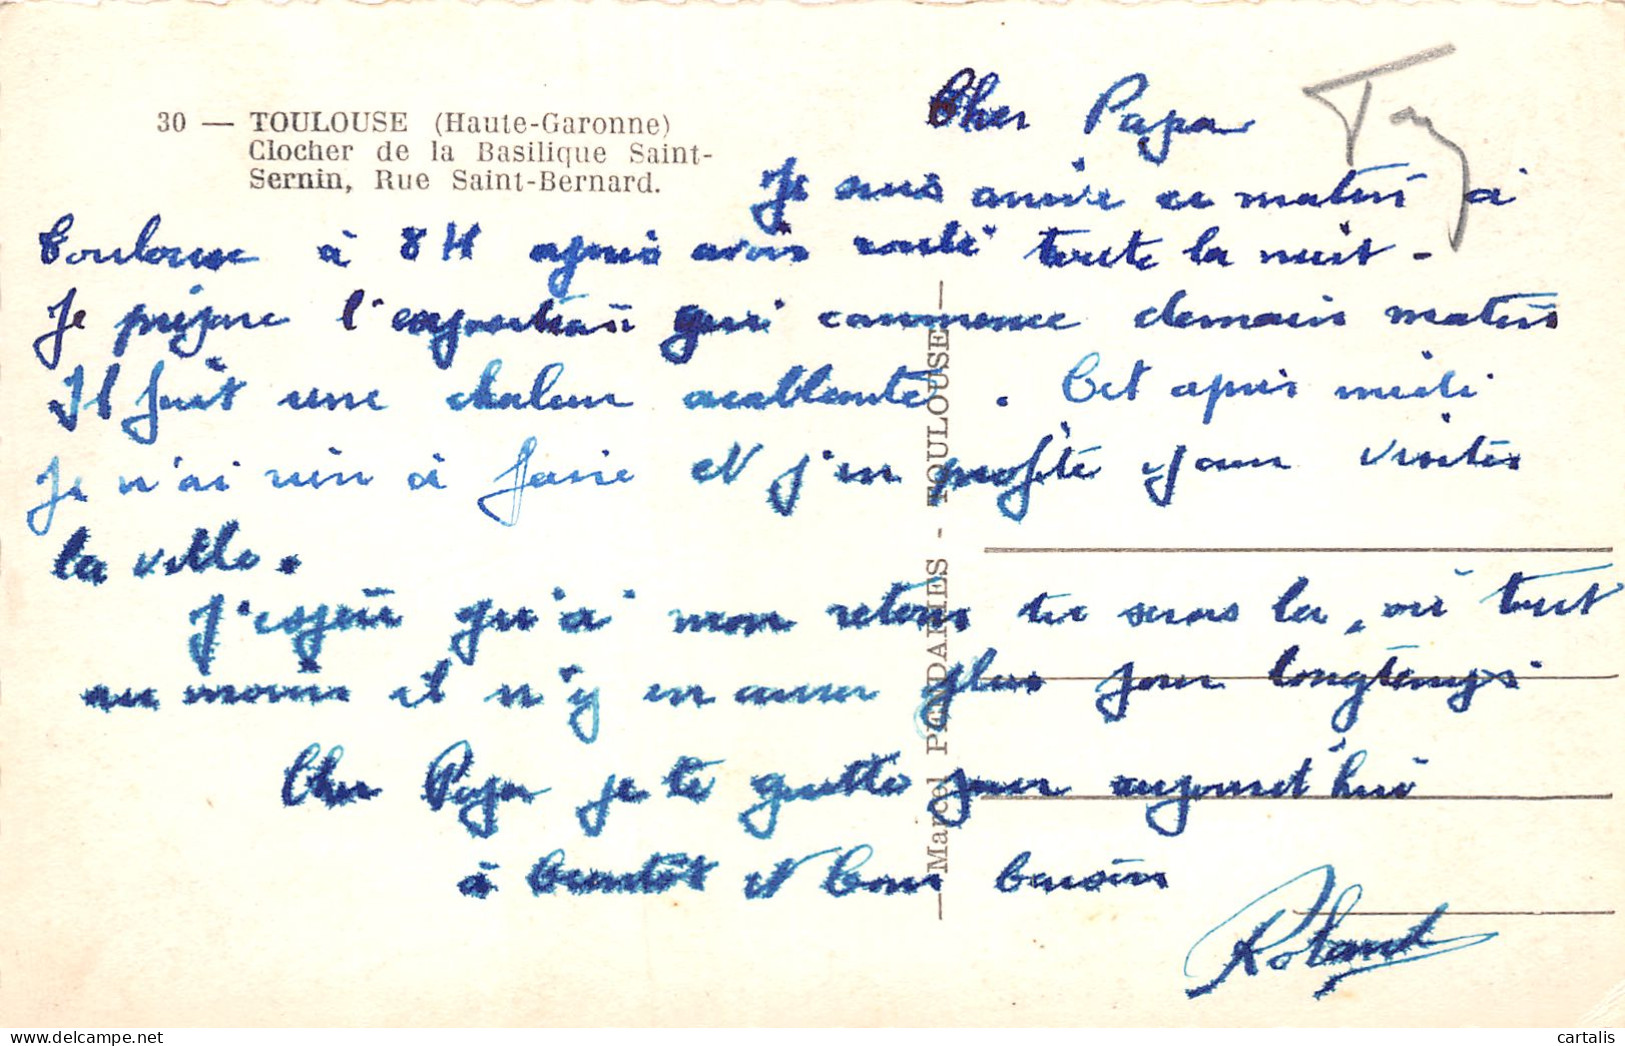 30 — TOULOUSE (Haute-Garonne)
Clocher de la Basilique Saint-
Sernin, Rue Saint-Bernard.
Cher Papa
Je suis arrivé ce matin à
Toulouse à 8H après avoir roulé toute la nuit -
Je prépare l'exposition qui commence demain matin
Il fait une chaleur accablante. Cet après midi
Je n'ai rien à faire et j'en profite pour visiter
la ville.
J'espère qu'à mon retour tu seras la, ou tout
au moins il n'y en aura plus pour longtemps.
Cher Papa je te quitte pour aujourd'hui
à bientôt et bons baisers
Roland
Marcel PENDARIES - TOULOUSE
cartalis